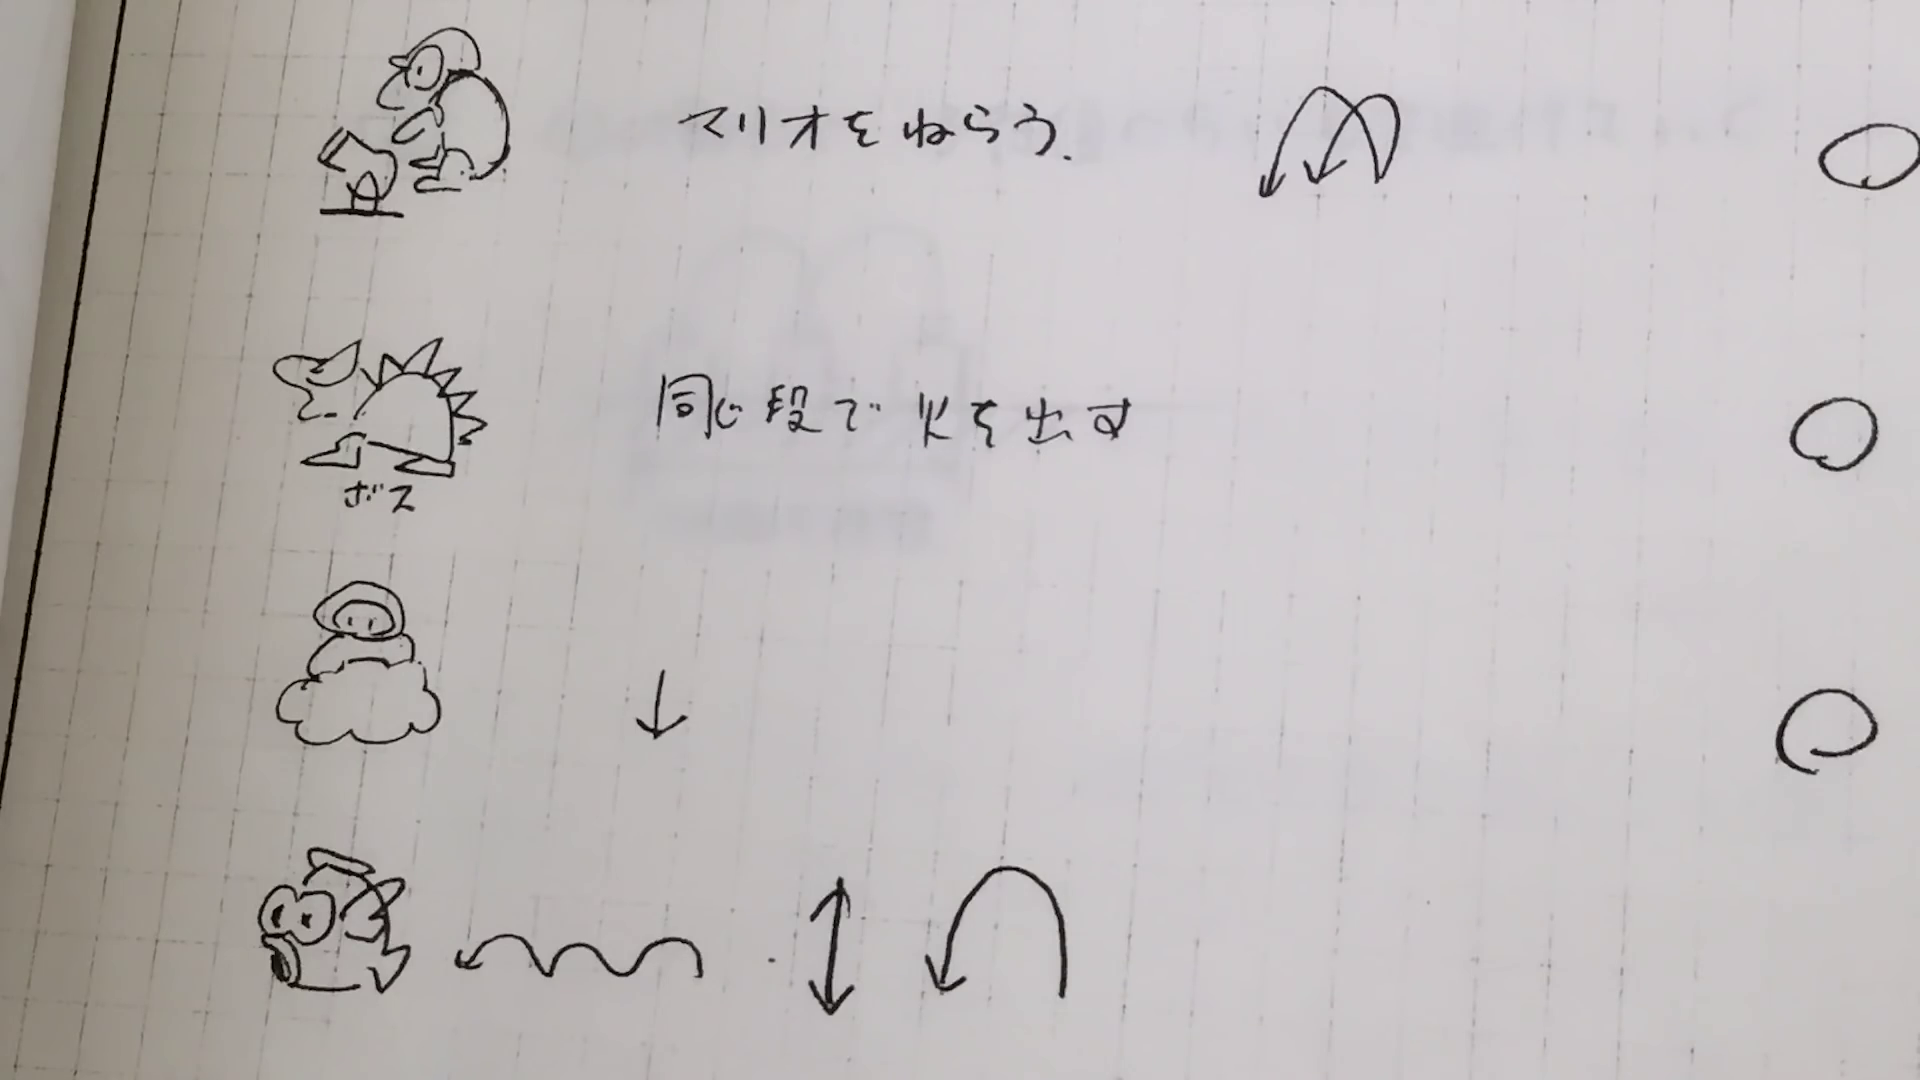 マリオをねらう.
同じ段で火を出す
ボス